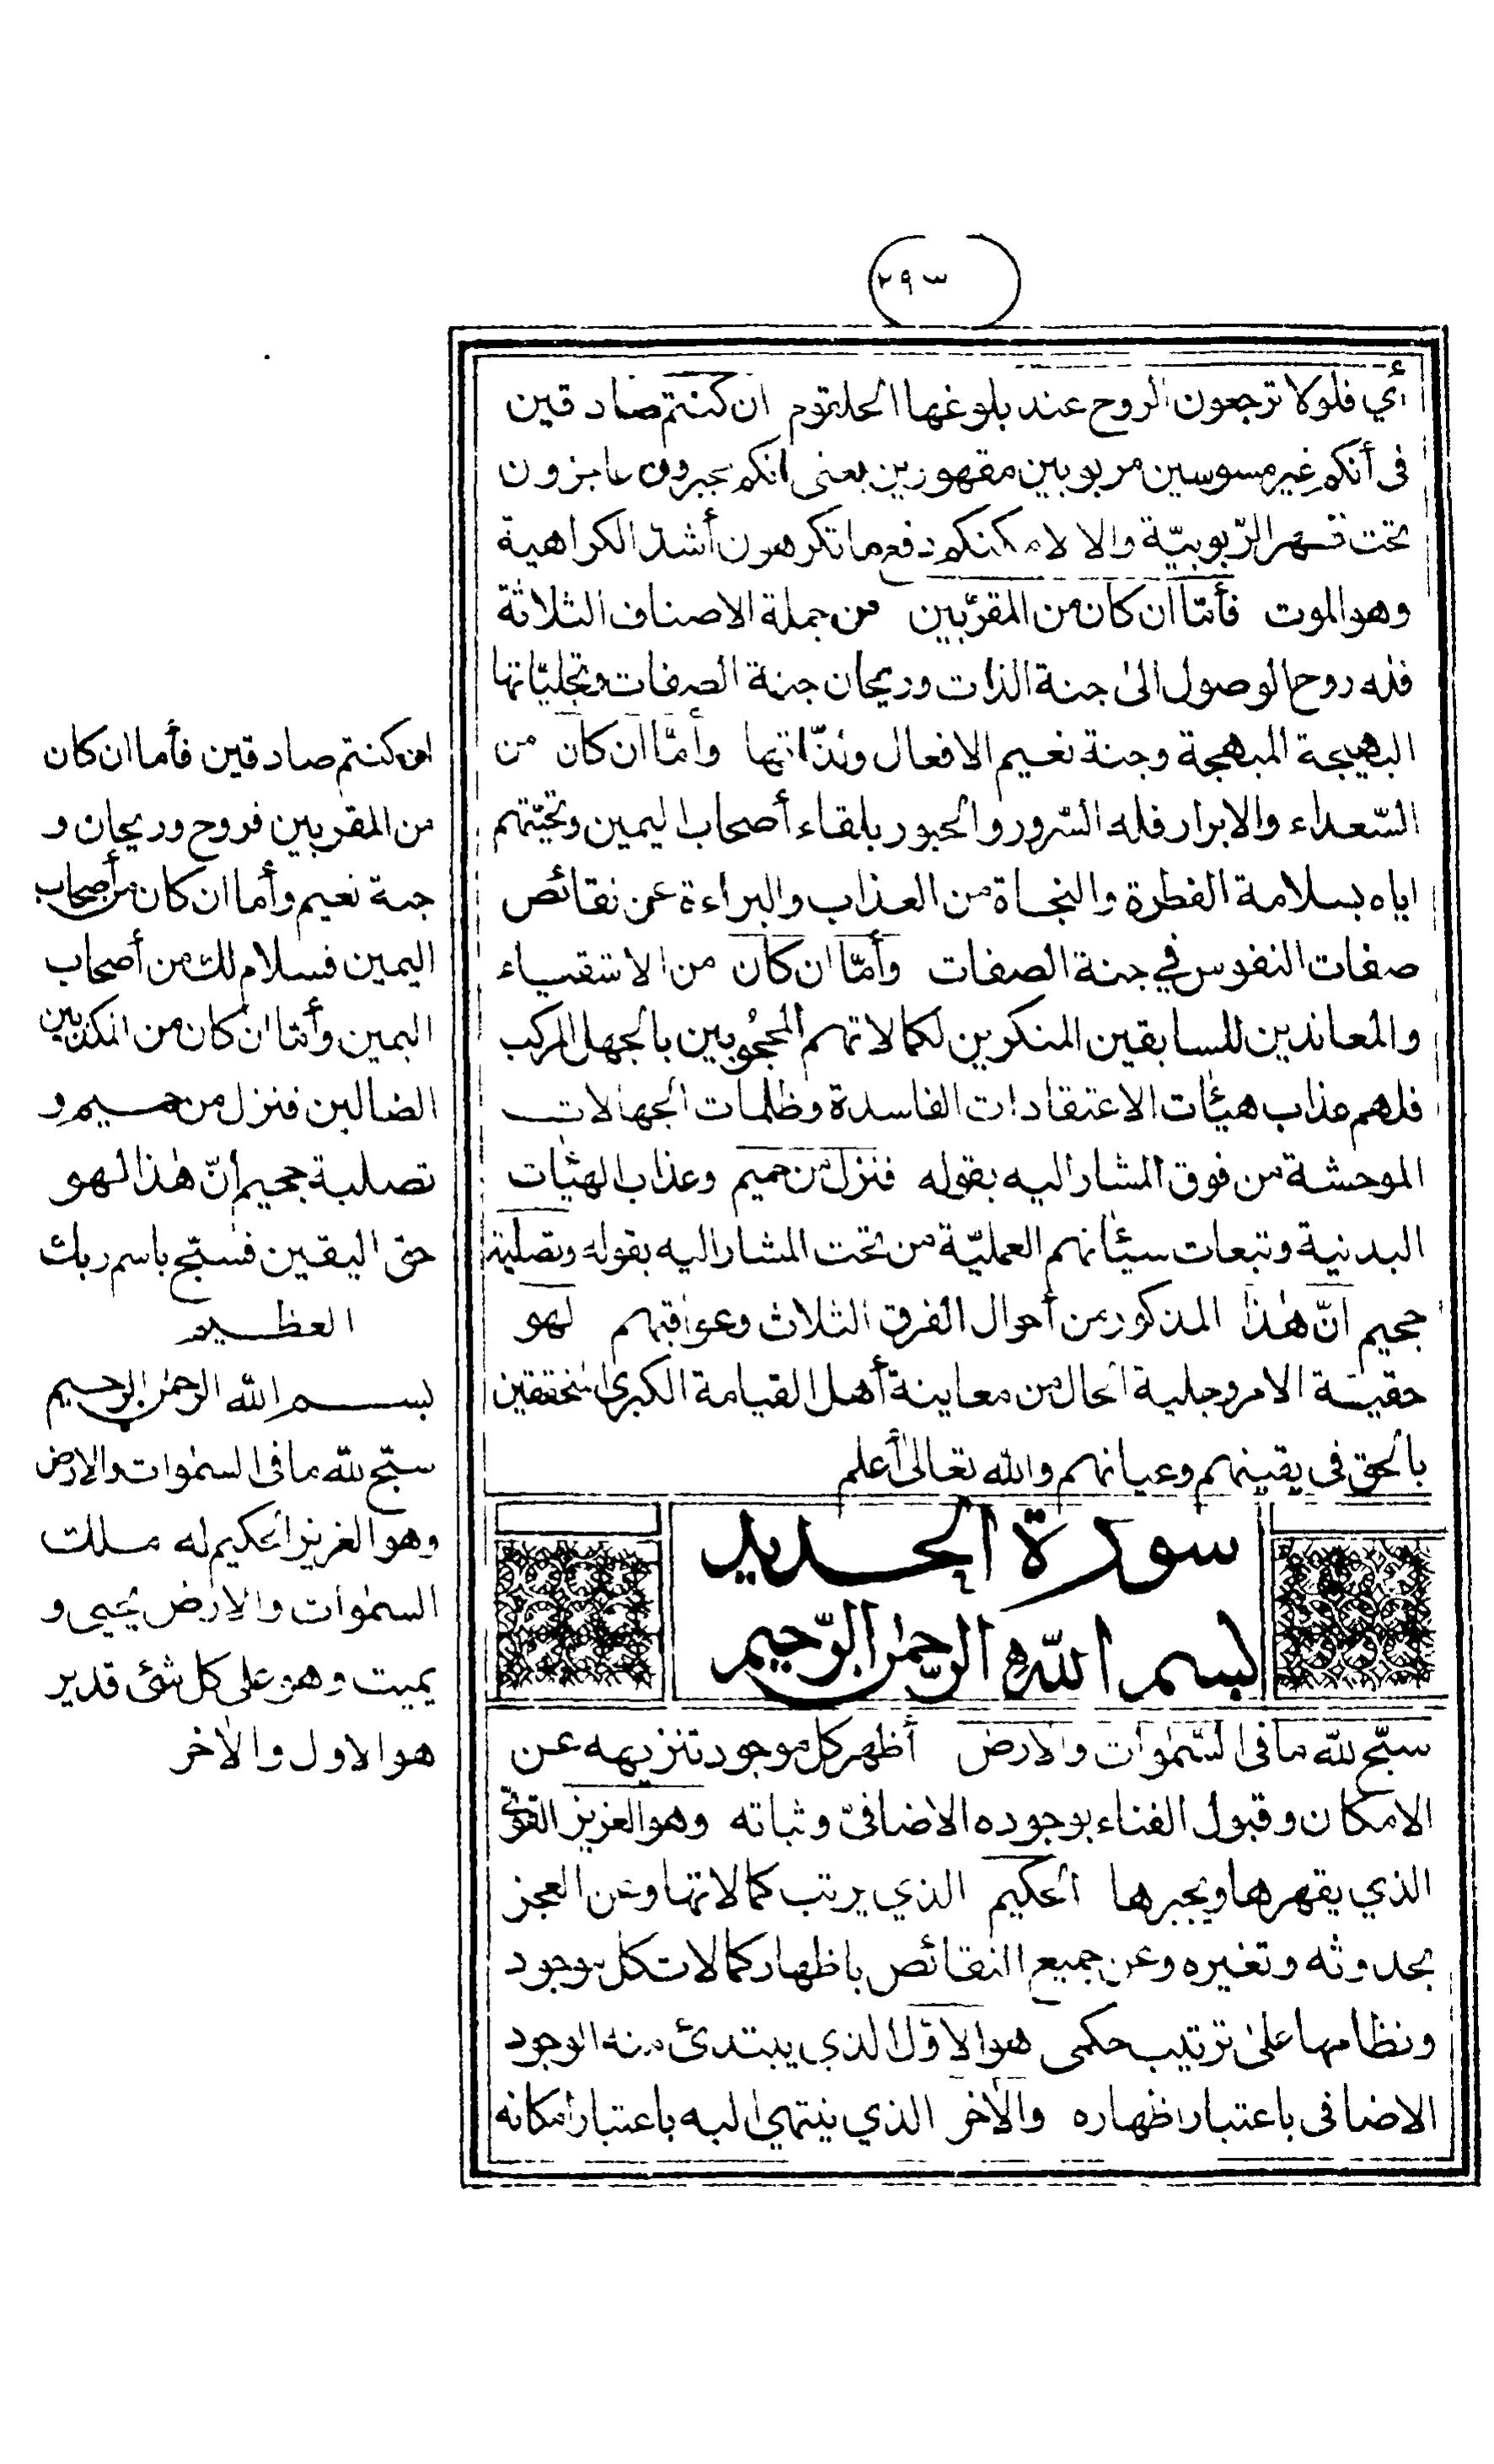 ٢٩٣
أي فلولا ترجعون الروح عند بلوغها الحلقوم ان كنتم صادقين
فى أنكم غير مسوسين مربوبين مقهورين يعنى انكم مجبرون عاجزون
تحت قهر الرّبوبيّة والا لامكنكم دفع ما تكرهون أشدّ الكراهية
وهو الموت فأمّا ان كان من المقرّبين من جملة الاصناف الثلاثة
فله روح الوصول الى جنة الذات وريحان جنة الصفات وتجليّاتها
البهيجة المبهجة وجنة نعيم الافعال ولذّاتها وأمّا ان كان من
السّعداء والابرار فله السّرور والحبور بلقاء أصحاب اليمين وتحيّتهم
اياه بسلامة الفطرة والنجاة من العذاب والبراءة عن نقائص
صفات النفوس في جنة الصفات وأمّا ان كان من الاشقياء
والمعاندين للسابقين المنكرين لكمالاتهم المحجوبين بالجهل المركب
فلهم عذاب هيئات الاعتقادات الفاسدة وظلمات الجهالات
الموحشة من فوق المشار اليه بقوله فنزل من حميم وعذاب الهيئات
البدنية وتبعات سيئاتهم العمليّة من تحت المشار اليه بقوله وتصلية
جحيم انّ هٰذا المذكور من أحوال الفرق الثلاث وعواقبهم لهو
حقيقة الامر وجلية الحال من معاينة أهل القيامة الكبرى المتحققين
بالحق فى يقينهم وعيانهم والله تعالى أعلم
سورة الحديد
بسم الله الرحمٰن الرّحيم
سبّح لله ما فى السّمٰوات والارض أظهر كل موجود تنزيهه عن
الامكان وقبول الفناء بوجوده الاضافىّ وثباته وهو العزيز القوىّ
الذي يقهرها ويجبرها الحكيم الذي يرتب كمالاتها وعن العجز
بحدوثه وتغيره وعن جميع النقائص باظهار كمالات كل موجود
ونظامها على ترتيب حكمى هو الاوّل الذي يبتدئ منه الوجود
الاضافى باعتبار اظهاره والاٰخر الذي ينتهي اليه باعتبار امكانه
ان كنتم صادقين فأما ان كان
من المقربين فروح وريحان و
جنة نعيم وأما ان كان من أصحاب
اليمين فسلام لك من أصحاب
اليمين وأمّا ان كان من المكذبين
الضالين فنزل من حميم و
تصلية جحيم انّ هٰذا لهو
حق اليقين فسبّح باسم ربك
العظيم
بسم الله الرحمٰن الرحيم
سبّح لله ما فى السمٰوات والارض
وهو العزيز الحكيم له ملك
السمٰوات والارض يحيى و
يميت وهو على كل شئ قدير
هو الاول والاٰخر